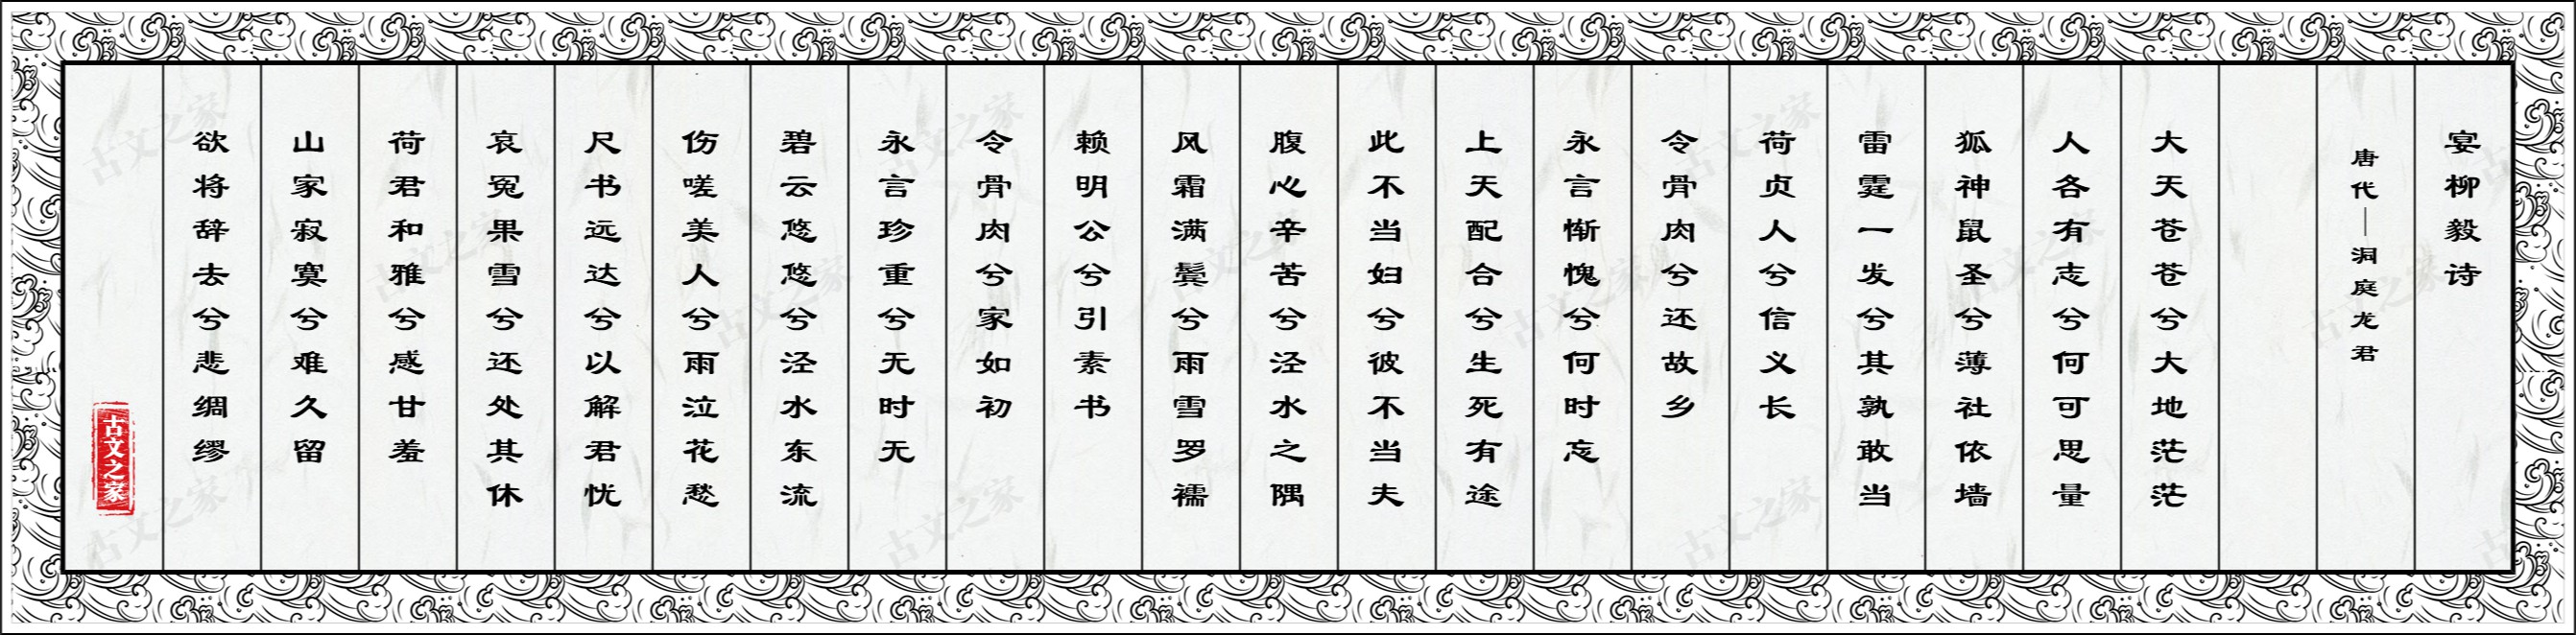 宴柳毅诗
唐代—洞庭龙君
大天苍苍兮大地茫茫
人各有志兮何可思量
狐神鼠圣兮薄社依墙
雷霆一发兮其孰敢当
荷贞人兮信义长
令骨肉兮还故乡
永言惭愧兮何时忘
上天配合兮生死有途
此不当妇兮彼不当夫
腹心辛苦兮泾水之隅
风霜满鬓兮雨雪罗襦
赖明公兮引素书
令骨肉兮家如初
永言珍重兮无时无
碧云悠悠兮泾水东流
伤嗟美人兮雨泣花愁
尺书远达兮以解君忧
哀冤果雪兮还处其休
荷君和雅兮感甘羞
山家寂寞兮难久留
欲将辞去兮悲绸缪
古文之家